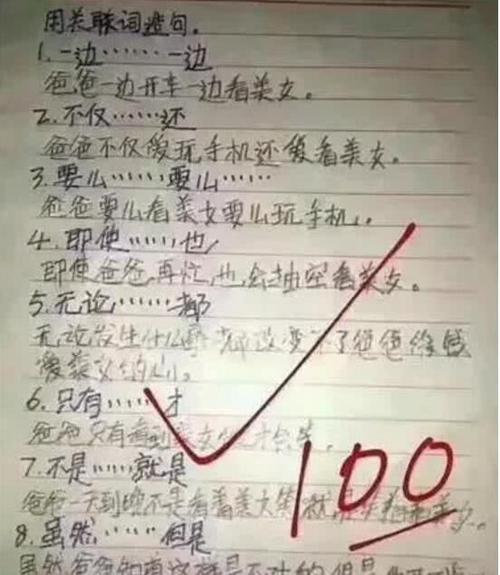 用关联词造句。
1.一边……一边
爸爸一边开车一边看美女。
2.不仅……还
爸爸不仅爱玩手机还爱看美女。
3.要么……要么……
爸爸要么看美女要么玩手机。
4.即使……也
即使爸爸再忙,也会抽空看美女。
5.无论……都
无论发生什么事都改变不了爸爸
美女的心。
6.只有……才
爸爸只有看到美女才会笑。
7.不是……就是
爸爸一天到晚不是看着美女笑就
8.虽然……但是
虽然爸爸知道这样是不对的,但是
100